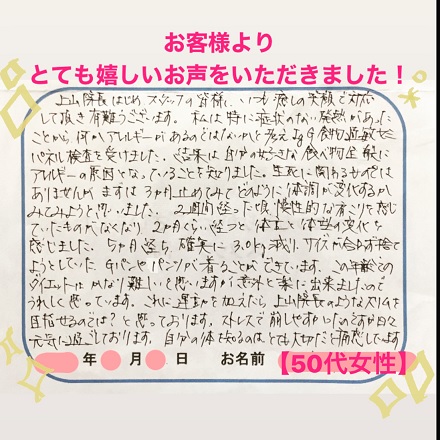 お客様より
とても嬉しいお声をいただきました！
上山院長はじめ、スタッフの皆様、いつも癒しの笑顔で対応
して頂き有難うございます。私は特に症状のない発熱があった
ことから、何かアレルギーがあるのではないかと考え IgG 食物過敏セ
パネル検査を受けました。結果は自分の好きな食べ物全般に
アレルギーの原因となっていることを知りました。生死に関わるものでは
ありませんが まずは 3か月止めてみてどのように体調が変化するか
みてみようと思いました。2週間経った頃、慢性的な肩こりを感じ
ていたものがなくなり 2か月くらい経つと体重と体型の変化を
感じました。5ヶ月経ち、確実に 3.0kg減り、サイズが合わず捨て
ようとしていた GパンやパンツJが着ることができています。この年齢での
ダイエットはかなり難しいと思いますが意外と楽に出来ましたので
うれしく思っています。これに運動を加えたら、上山院長のようなスリムを
目指せるのでは？と思っております。ストレスで崩しやすかったのですが日々
元気に過しております。自分の体を知るのはとても大切だと痛感してます
年 月 日 お名前 【50代女性】